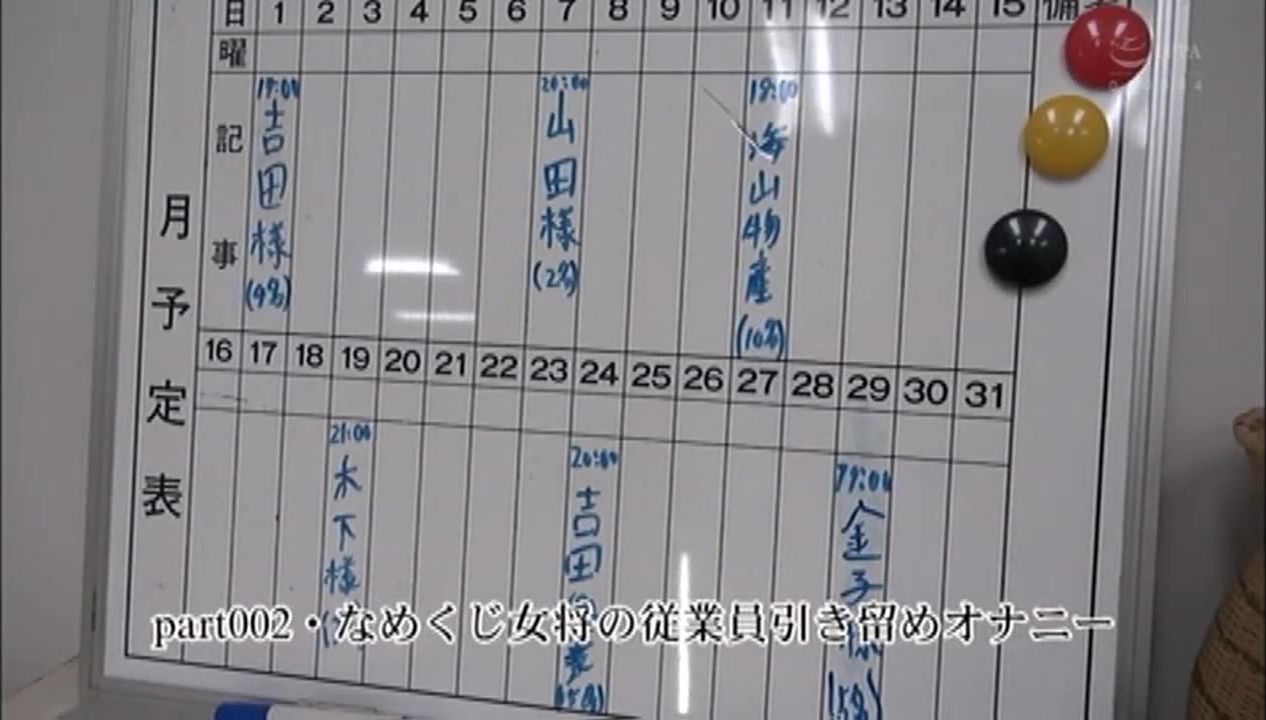 日 1 2 3 4 5 6 7 8 9 10 11 12 13 14 15 備考
曜
記事
19:00 吉田様 (9名)
20:00 山田様 (2名)
18:00 海山物産 (10名)
月予定表
16 17 18 19 20 21 22 23 24 25 26 27 28 29 30 31
21:00 木下様
20:00 吉田
19:00 金子様 (5名)
part002・なめくじ女将の従業員引き留めオナニー